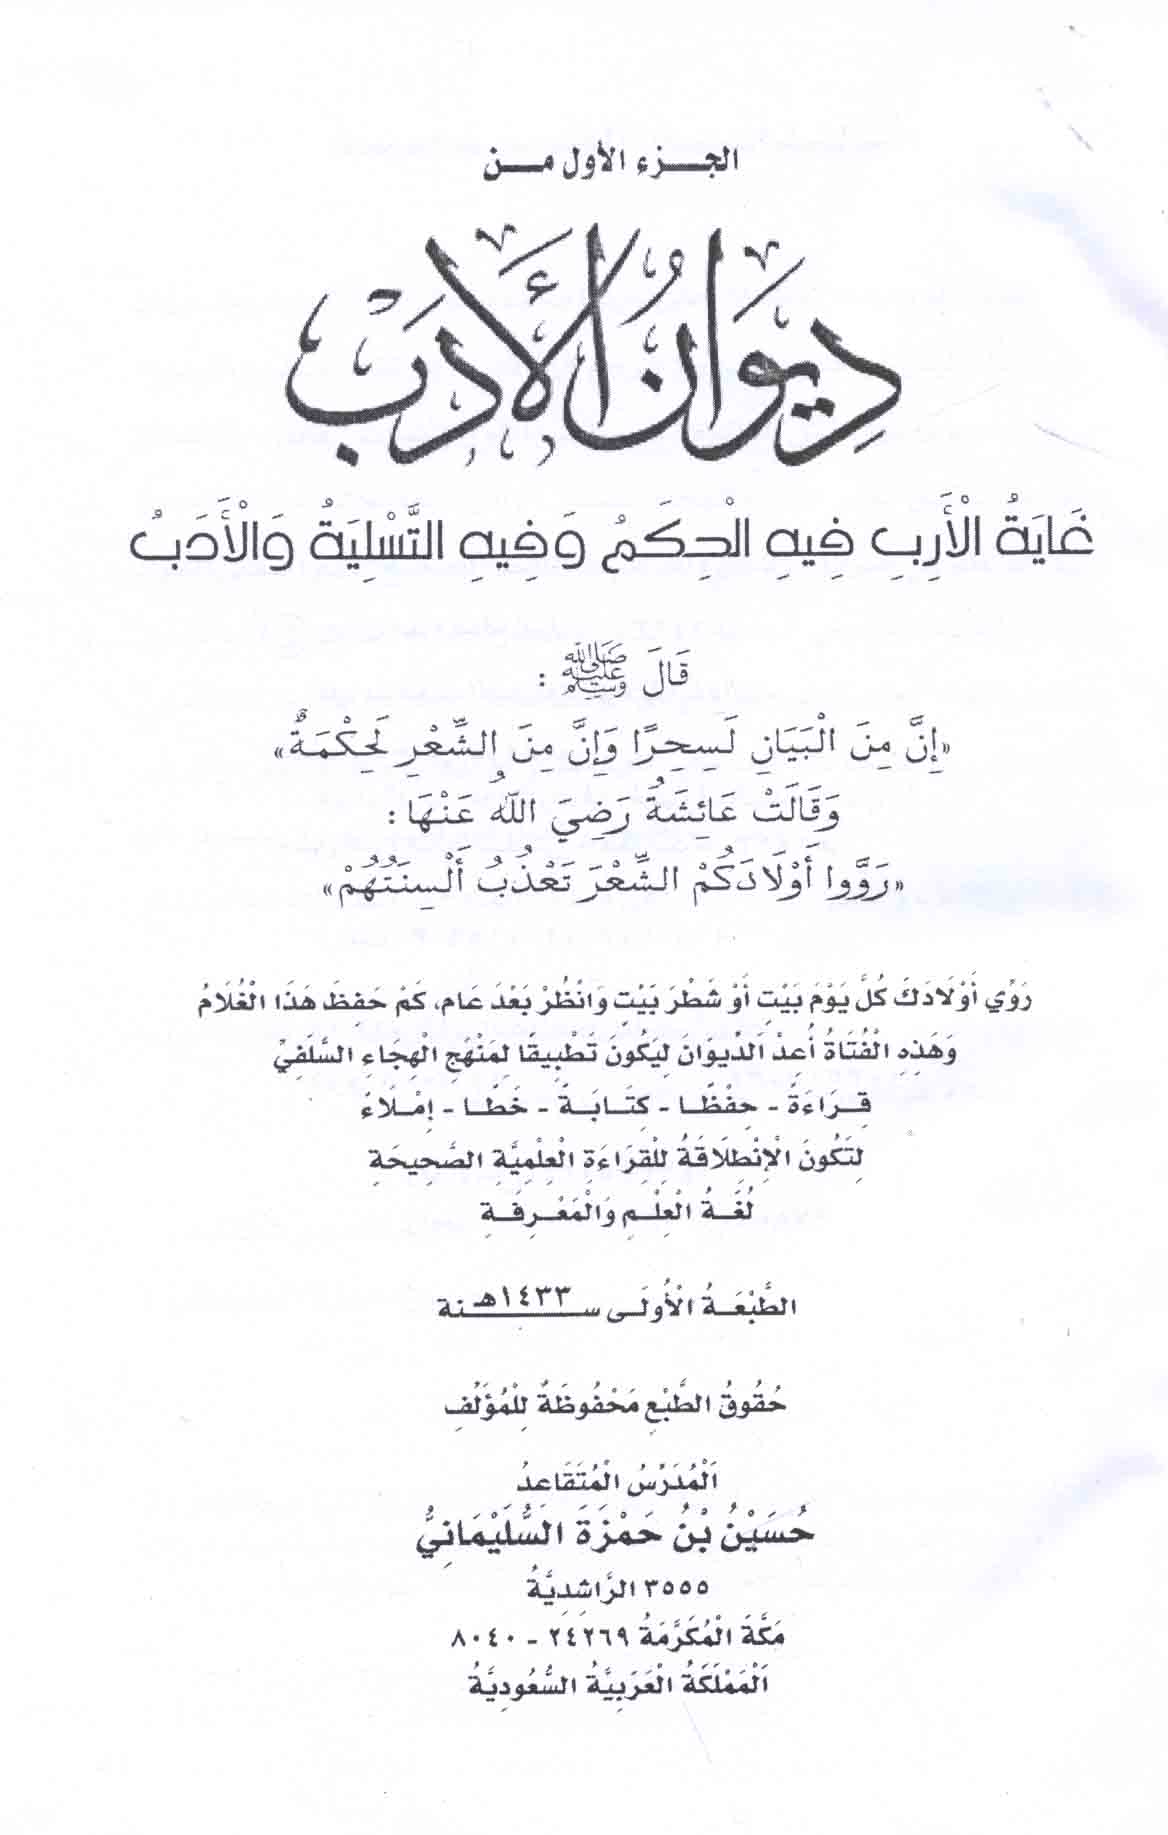 الجـــزء الأول مـــن
دِيوَانُ الْأَدَبِ
غَايَةُ الْأَرِبِ فِيهِ الْحِكَمُ وَفِيهِ التَّسْلِيَةُ وَالْأَدَبُ
قَالَ ﷺ :
«إِنَّ مِنَ الْبَيَانِ لَسِحِرًا وَإِنَّ مِنَ الشِّعْرِ لَحِكْمَةٌ»
وَقَالَتْ عَائِشَةُ رَضِيَ اللَّهُ عَنْهَا :
«رَوَّوا أَوْلَادَكُمْ الشِّعْرَ تَعْذُبُ أَلْسِنَتُهُمْ»
رَوِّي أَوْلَادَكَ كُلَّ يَوْمَ بَيْتٍ أَوْ شَطْرَ بَيْتٍ وَانْظُرْ بَعْدَ عَام، كَمْ حَفِظَ هَذَا الْغُلَامُ
وَهَذِهِ الْفُتَاةُ أُعِدْ الدِّيوَانَ لِيَكُونَ تَطْبِيقا لِمَنْهَجِ الْهِجَاءِ السَّلَفِيِّ
قِــرَاءَةً - حِفْظًــا - كِتَــابَــةً - خَطًّــا - إِمْــلَاءً
لِتَكُونَ الْاِنْطِلَاقَةُ لِلْقِرَاءَةِ الْعِلْمِيَّةِ الصَّحِيحَةِ
لُغَــةُ الْعِلْــمِ وَالْمَعْــرِفَــةِ
الطَّبْعَــةُ الْأُولَــى ســـنة ١٤٣٣هـ
حُقُوقُ الطَّبْعِ مَحْفُوظَةٌ لِلْمُؤَلِّفِ
اَلْمُدَرِّسُ الْمُتَقَاعِدُ
حُسَيْنُ بْنُ حَمْزَةَ السُّلَيْمَانِيُّ
٣٥٥٥ الرَّاشِدِيَّةُ
مَكَّةَ الْمُكَرَّمَةُ ٢٤٢٦٩ - ٨٠٤٠
اَلْمَمْلَكَةُ الْعَرَبِيَّةُ السُّعُودِيَّةُ